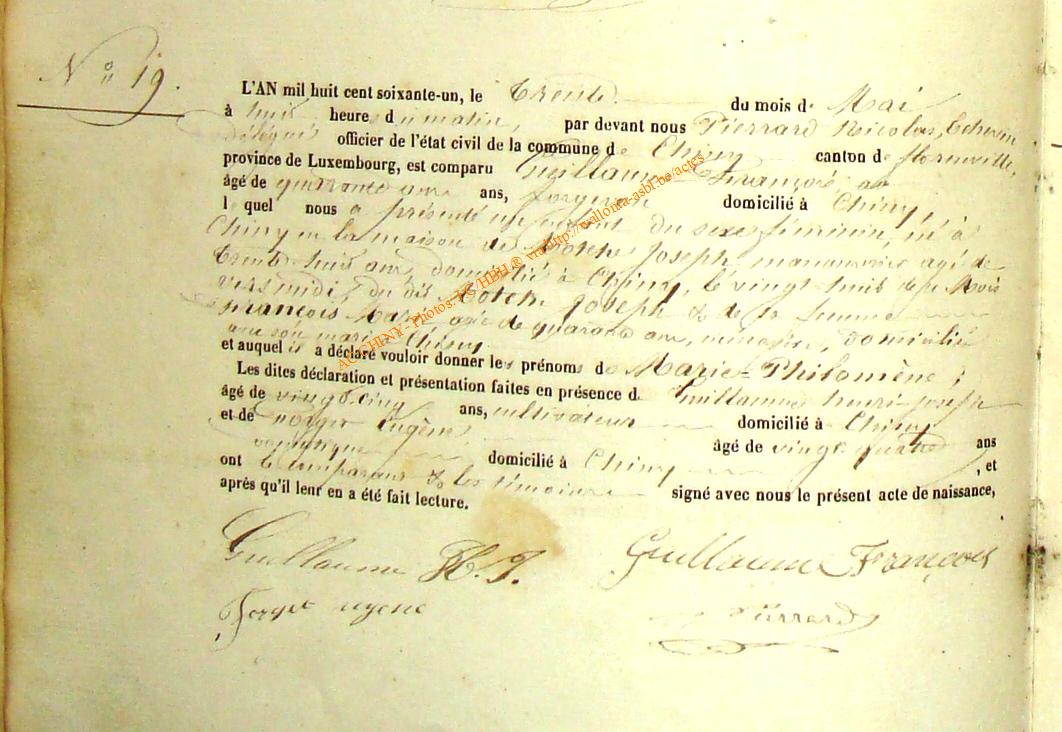 N° 19.
L'AN mil huit cent soixante-un, le Trente du mois de Mai
à huit heures du matin, par devant nous Pierrard Nicolas, Echevin
délégué officier de l'état civil de la commune de Chiny canton de florenville,
province de Luxembourg, est comparu Guillaume François
âgé de quarante ans, forgeron domicilié à Chiny,
lequel nous a présenté un enfant du sexe féminin, né à
Chiny en la maison de Joseph manouvrier agé de
trente huit ans, domicilié à Chiny, le vingt huit de ce Mois
vers midi, du dit Joseph & de sa femme
françois agée de quarante ans, ménagère, domiciliée
avec son mari à Chiny
et auquel il a déclaré vouloir donner les prénoms de Marie-Philomène;
Les dites déclaration et présentation faites en présence de Guillaume henri joseph
âgé de vingt-cinq ans, cultivateur domicilié à Chiny
et de Eugène âgé de vingt quatre ans
domicilié à Chiny , et
ont le comparant & les témoins signé avec nous le présent acte de naissance,
après qu'il leur en a été fait lecture.
Guillaume H. J. Guillaume François
Pierrard
AC-CHINY - Photos: PS/HBH ® via http://wallonia-asbl.be/actes